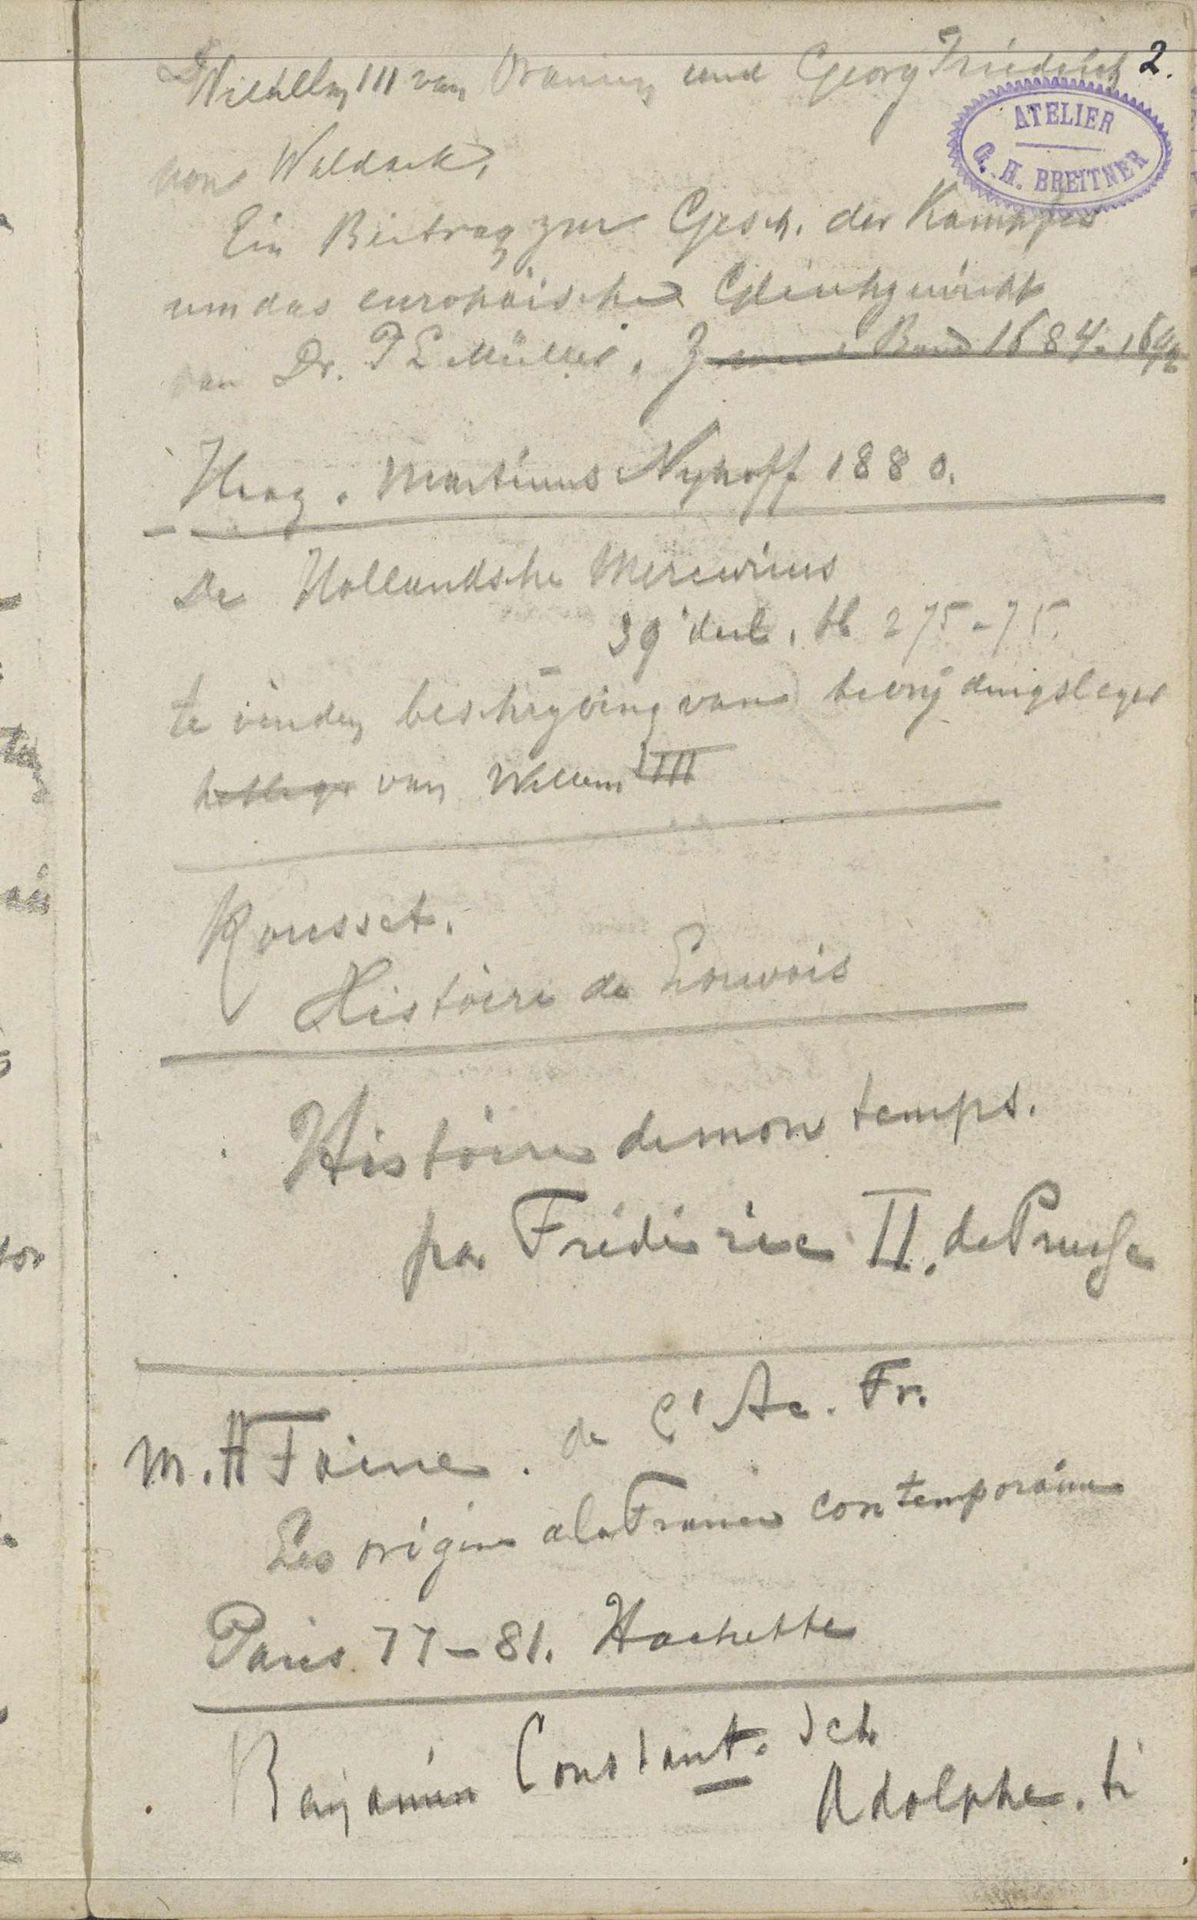 2.
Wilhelm III van Oranien und Georg Friedrich
ATELIER
G. H. BREITNER
von Waldeck,
Ein Beitrag zur Gesch. des Kampfes
um das europäische Gleichgewicht
van Dr. P L Müller. Band 1684-
Haag. Martinus Nyhoff 1880.
De Hollandsche Mercurius
39 deel. bl 275-75.
te vinden beschrijving van bevrijdingsleger
van Willem III
Rousset.
Histoire de Louvois
Histoire de mon temps.
par Fréderic II. de Prusse
M. H Taine. de l'Ac. Fr.
Les origines de la France contemporaine
Paris 77-81. Hachette
Benjamin Constant.
Adolphe.